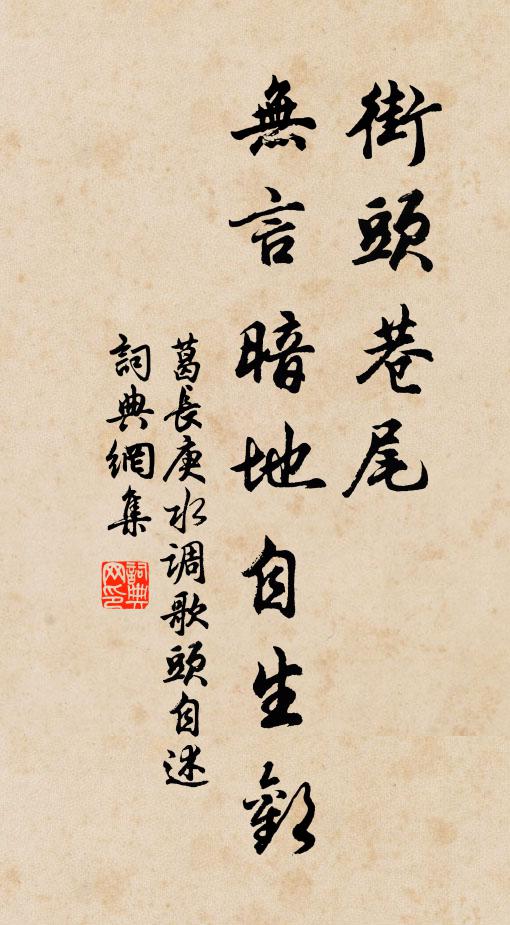 街頭巷尾
無言暗地自生歡
葛長庚水调歌頭自述
詞典網集
詞典
网印